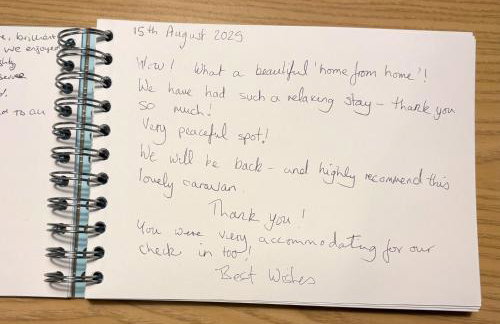 e, brilliant
we enjoyed
TO ALL
15th August 2025
Wow! What a beautiful 'home from home'!
We have had such a relaxing stay - thank you
so much!
Very peaceful spot!
We will be back - and highly recommend this
lovely caravan.
Thank you!
You were very accommodating for our
check in too!
Best Wishes